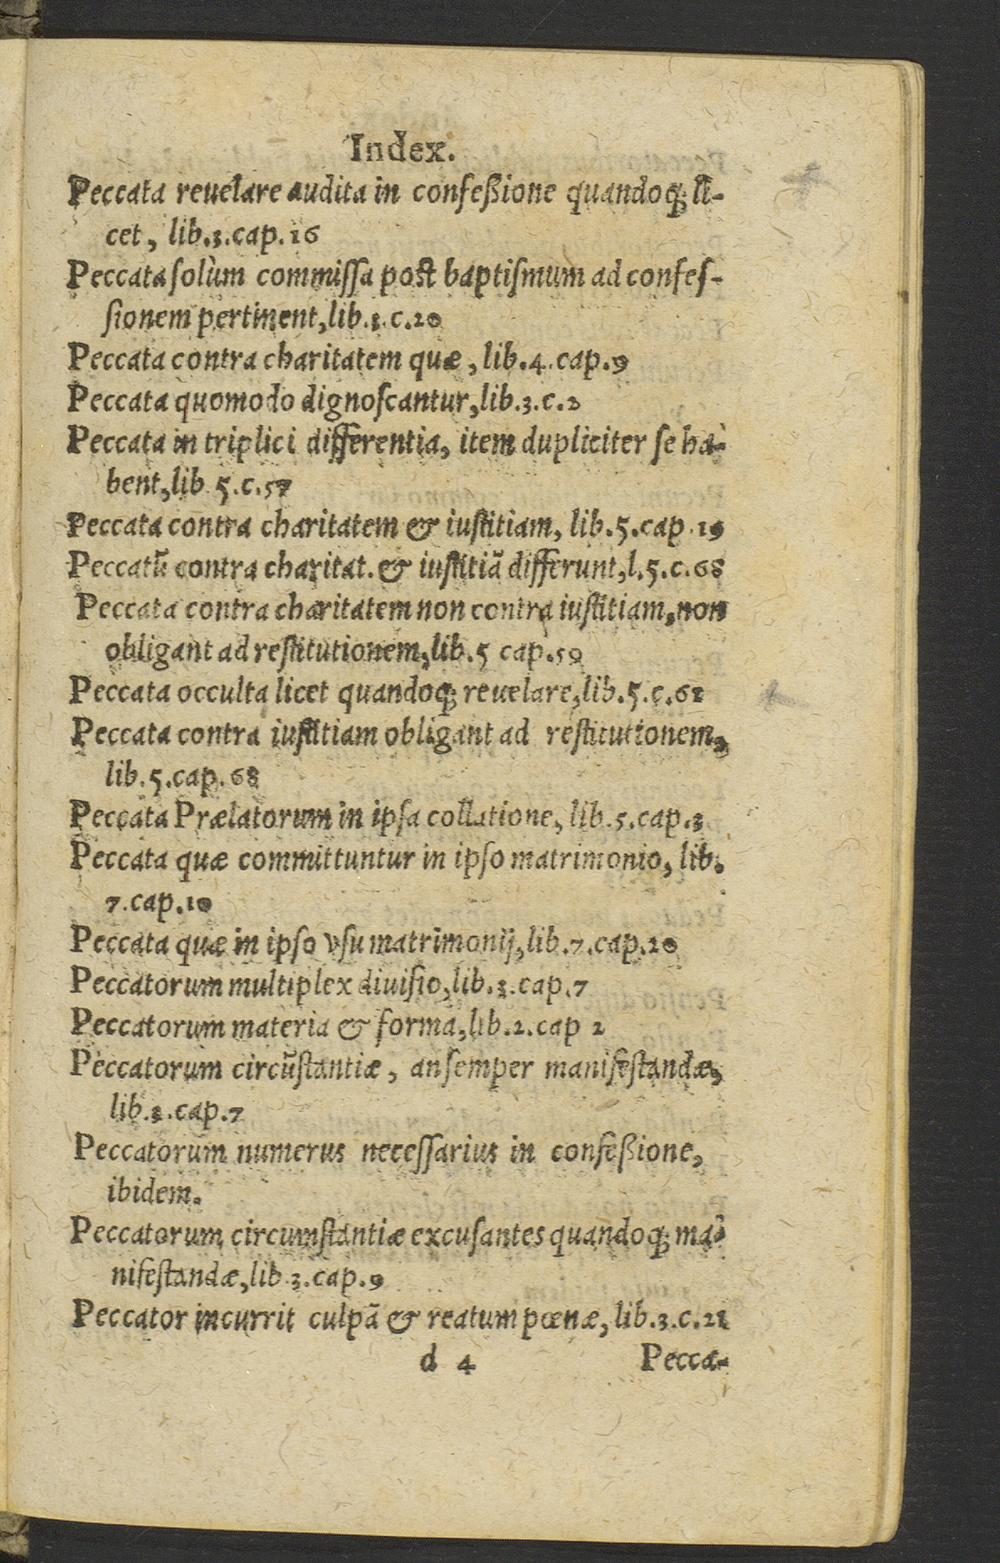 Index.
Peccata reuelare audita in confeßione quandoq; li-
cet, lib.3.cap.16
Peccata solùm commissa post baptismum ad confes-
sionem pertinent, lib.3.c.20
Peccata contra charitatem quæ, lib.4.cap.9
Peccata quomodo dignoscantur, lib.3.c.2
Peccata in triplici differentia, item dupliciter se ha-
bent, lib 5.c.57
Peccata contra charitatem & iustitiam, lib.5.cap.19
Peccatū contra charitat. & iustitiā differunt, l.5.c.68
Peccata contra charitatem non contra iustitiam, non
obligant ad restitutionem, lib.5 cap.59
Peccata occulta licet quandoq; reuelare, lib.5.c.62
Peccata contra iustitiam obligant ad restitutionem,
lib.5.cap.68
Peccata Prælatorum in ipsa collatione, lib.5.cap.3
Peccata quæ committuntur in ipso matrimonio, lib.
7.cap.10
Peccata quæ in ipso vsu matrimonij, lib.7.cap.20
Peccatorum multiplex diuisio, lib.3.cap.7
Peccatorum materia & forma, lib.2.cap 2
Peccatorum circūstantiæ, an semper manifestandæ,
lib.3.cap.7
Peccatorum numerus necessarius in confeßione,
ibidem.
Peccatorum circumstantiæ excusantes quandoq; ma-
nifestandæ, lib.3.cap.9
Peccator incurrit culpā & reatum pœnæ, lib.3.c.21
d 4 Pecca-